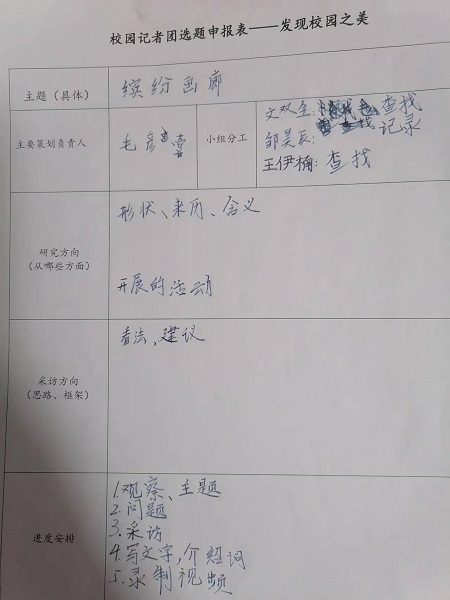 校园记者团选题申报表——发现校园之美
主题（具体） 缤纷画廊
主要策划负责人 毛彦喜 小组分工 文双全: 查找
邹昊辰: 记录
王伊楠: 查找
形状、来历、含义
研究方向
（从哪些方面）
开展的活动
看法,建议
采访方向
（思路、框架）
进度安排
1.观察、主题
2.问题
3.采访
4.写文字,介绍词
5.录制视频